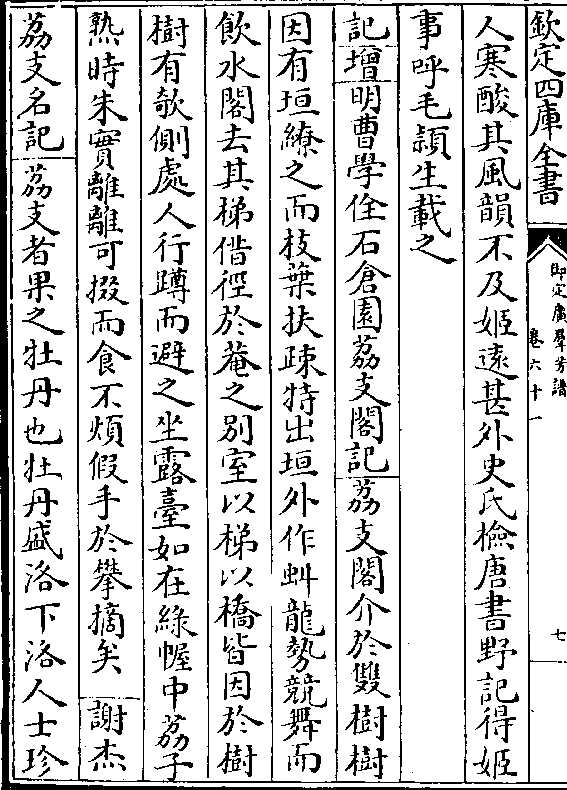 欽定四庫全書
御定廣羣芳譜
卷六十一
七
人寒酸其風韻不及姬遠甚外史氏檢唐書野記得姬
事呼毛穎生載之
記增明曹學佺石倉園荔支閣記荔支閣介於雙樹樹
因有垣繚之而枝葉扶疎特出垣外作虯龍勢競舞而
飲水閣去其梯借徑於菴之别室以梯以橋皆因於樹
樹有欹側處人行蹲而避之坐露臺如在綠幄中荔子
熟時朱實離離可掇而食不煩假手於攀摘矣謝杰
荔支名記荔支者果之牡丹也牡丹盛洛下洛人士珍